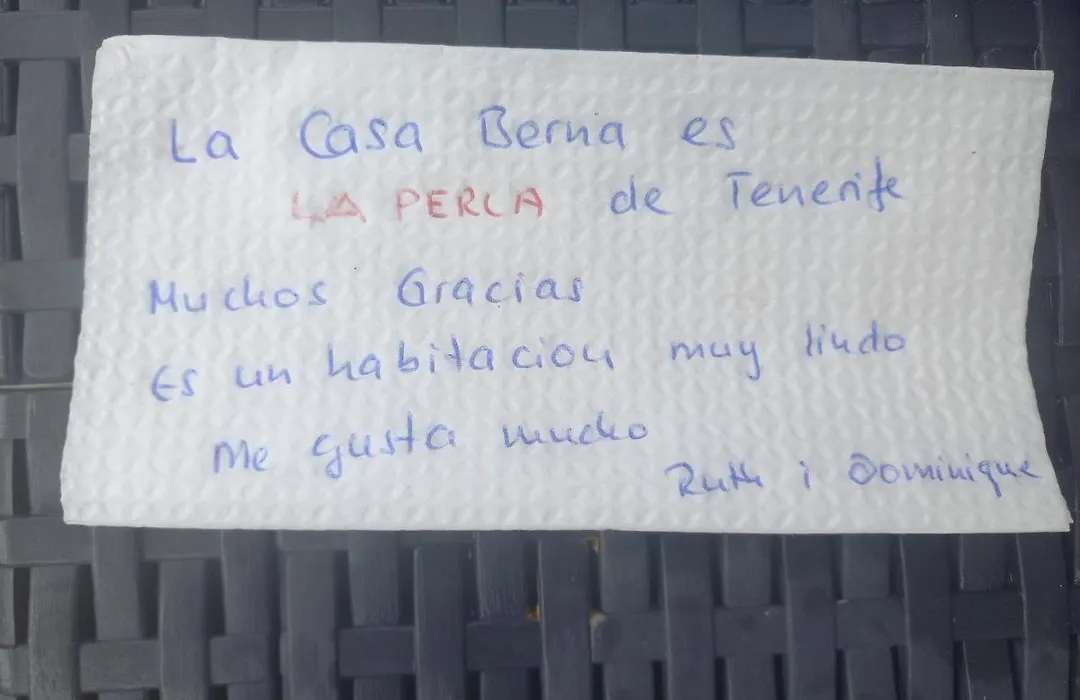 La Casa Berna es
LA PERLA de Tenerife
Muchos Gracias
Es un habitacion muy lindo
Me gusta mucho
Ruth i Dominique